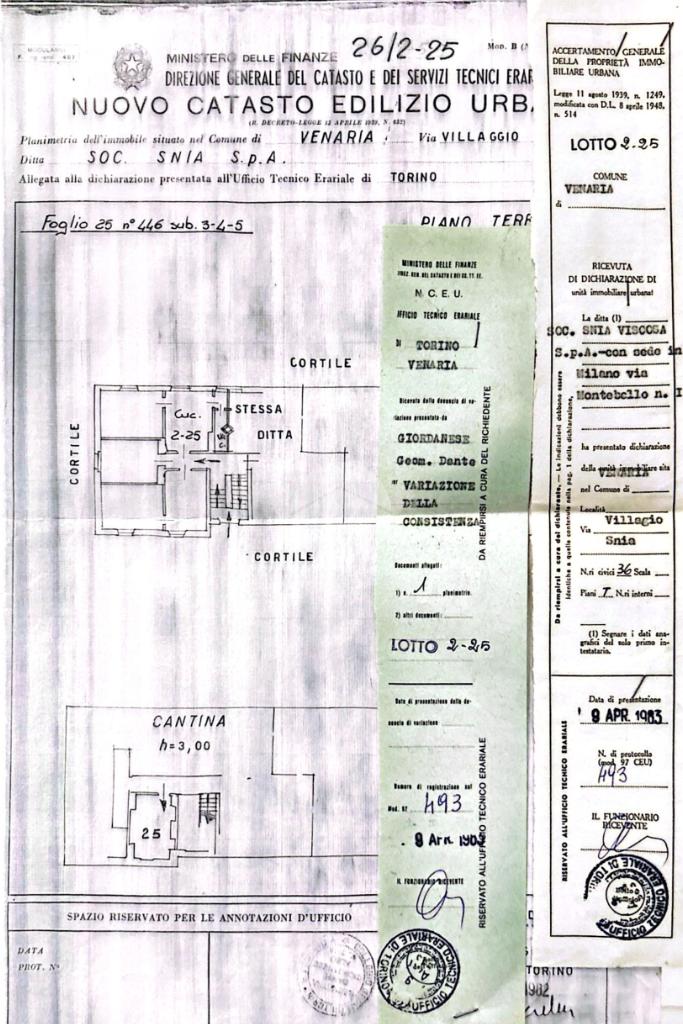 MODULARIO
26/2-25
MOD. B (
MINISTERO DELLE FINANZE
DIREZIONE GENERALE DEL CATASTO E DEI SERVIZI TECNICI ERAR
NUOVO CATASTO EDILIZIO URB
(R. DECRETO-LEGGE 13 APRILE 1939, N. 652)
Planimetria dell'immobile situato nel Comune di VENARIA Via VILLAGGIO
Ditta SOC. SNIA S.p.A.
Allegata alla dichiarazione presentata all'Ufficio Tecnico Erariale di TORINO
Foglio 25 n° 446 sub. 3-4-5
PIANO TERR
CORTILE
CORTILE
Cuc.
2-25
W.C.
STESSA
DITTA
CORTILE
CANTINA
h=3,00
25
SPAZIO RISERVATO PER LE ANNOTAZIONI D'UFFICIO
DATA
PROT. N°
MINISTERO DELLE FINANZE
DIREZ. GEN. DEL CATASTO E DEI SS. TT. EE.
N. C. E. U.
UFFICIO TECNICO ERARIALE
DI TORINO
VENARIA
Ricevuta della denuncia di va-
riazione presentata da
GIORDANESE
Geom. Dante
per VARIAZIONE
DELLA
CONSISTENZA
Documenti allegati:
1) n. 1 planimetrie.
2) altri documenti:
LOTTO 2-25
Data di presentazione della de-
nuncia di variazione
Numero di registrazione sul
Mod. 97 493
9 APR. 1983
IL FUNZIONARIO RICEVENTE
UFFICIO TECNICO ERARIALE DI TORINO
DA RIEMPIRSI A CURA DEL RICHIEDENTE
RISERVATO ALL'UFFICIO TECNICO ERARIALE
ACCERTAMENTO GENERALE
DELLA PROPRIETÀ IMMO-
BILIARE URBANA
Legge 11 agosto 1939, n. 1249,
modificata con D.L. 8 aprile 1948,
n. 514
LOTTO 2-25
COMUNE
di VENARIA
RICEVUTA
DI DICHIARAZIONE DI
unità immobiliare urbana!
La ditta (1)
SOC. SNIA VISCOSA
S.p.A.-con sede in
Milano via
Montebello n. I
ha presentato dichiarazione
della unità immobiliare sita
nel Comune di VENARIA
Località
Via Villagio
Snia
N.ri civici 36 Scala
Piani T N.ri interni
(1) Segnare i dati ana-
grafici del solo primo in-
testatario.
Da riempirsi a cura del dichiarante. — Le indicazioni debbono essere
identiche a quelle contenute nella pag. 1 della dichiarazione.
Data di presentazione
9 APR. 1983
N. di protocollo
(mod. 97 CEU)
493
IL FUNZIONARIO
RICEVENTE
RISERVATO ALL'UFFICIO TECNICO ERARIALE
UFFICIO TECNICO ERARIALE DI TORINO
TORINO
1982